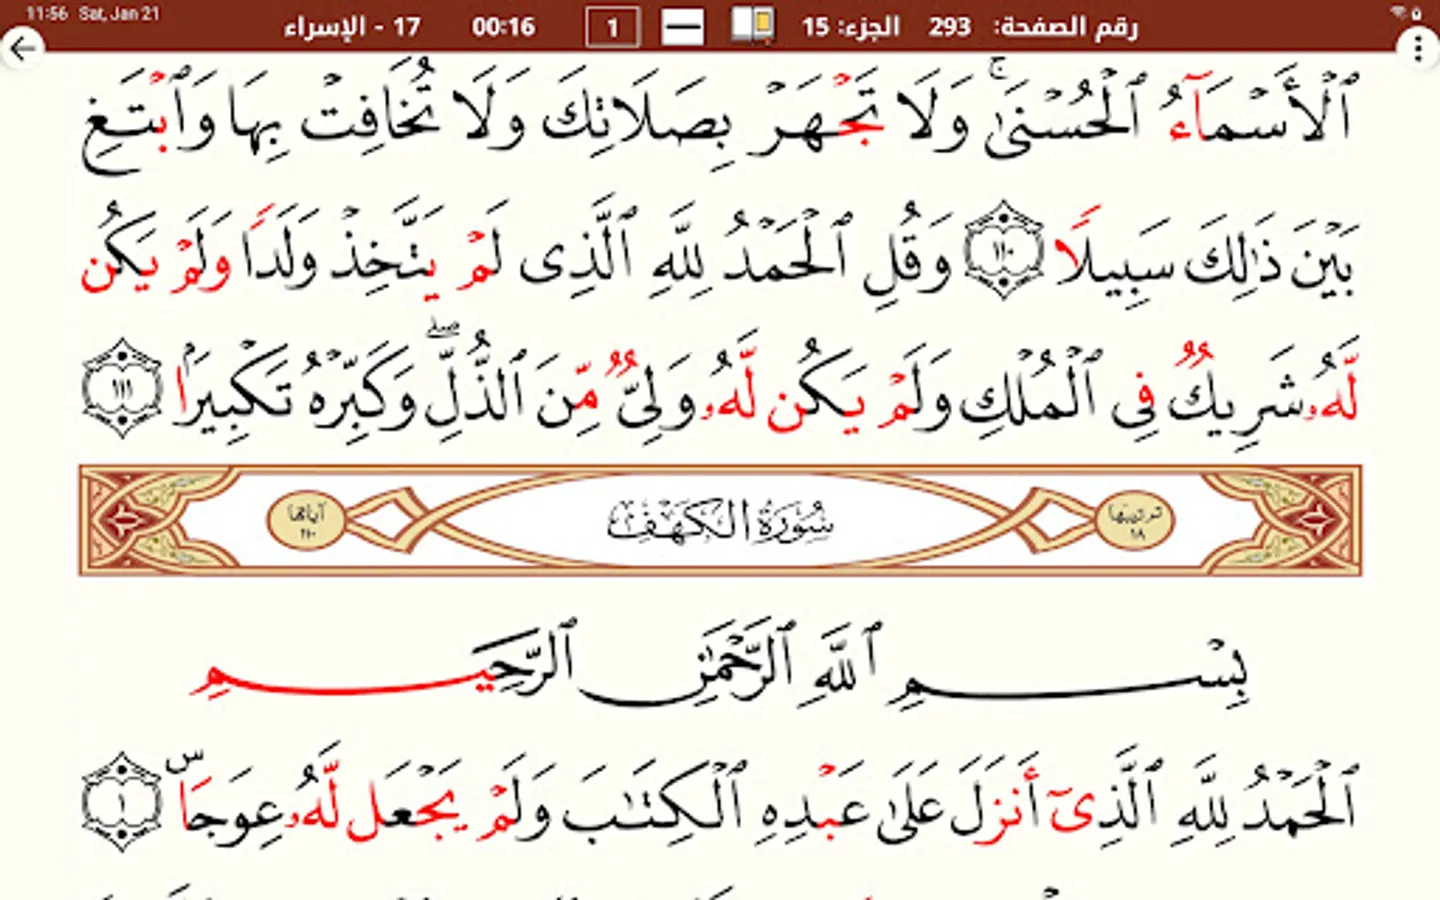 11:56 Sat, Jan 21
رقم الصفحة: 293 الجزء: 15 1 00:16 17 - الإسراء
ٱلْأَسْمَآءُ ٱلْحُسْنَىٰ ۚ وَلَا تَجْهَرْ بِصَلَاتِكَ وَلَا تُخَافِتْ بِهَا وَٱبْتَغِ
بَيْنَ ذَٰلِكَ سَبِيلًا ١١٠ وَقُلِ ٱلْحَمْدُ لِلَّهِ ٱلَّذِى لَمْ يَتَّخِذْ وَلَدًا وَلَمْ يَكُن
لَّهُۥ شَرِيكٌ فِى ٱلْمُلْكِ وَلَمْ يَكُن لَّهُۥ وَلِىٌّ مِّنَ ٱلذُّلِّ ۖ وَكَبِّرْهُ تَكْبِيرًۢا ١١١
ترتيبها ١٨ سُورَةُ الكَهْفِ آياتها ١١٠
بِسْمِ ٱللَّهِ ٱلرَّحْمَٰنِ ٱلرَّحِيمِ
ٱلْحَمْدُ لِلَّهِ ٱلَّذِىٓ أَنزَلَ عَلَىٰ عَبْدِهِ ٱلْكِتَٰبَ وَلَمْ يَجْعَل لَّهُۥ عِوَجَاۜ ١